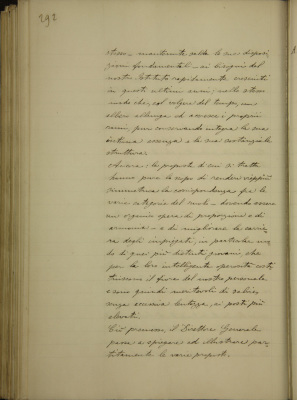 292
stesso - mantenute salde le sue disposi-
zioni fondamentali - ai bisogni del
nostro Istituto rapidamente cresciuti
in questi ultimi anni; nello stesso
modo che, col volgere del tempo, un
albero allunga ed accresce i propri
rami, pur conservando integra la sua
intima essenza e la sua sostanziale
struttura.
Ancora: le proposte di cui si tratta
hanno pure lo scopo di rendere vieppiù
simmetrica la corrispondenza fra le
varie categorie del ruolo - dovendo essere
un organico opera di proporzione e di
armonia - e di migliorare la carrie-
ra degli impiegati, in particolar mo-
do di quei più distinti giovani, che
per la loro intelligente operosità costi-
tuiscono il fiore del nostro personale
e sono quindi meritevoli di salire,
senza eccessiva lentezza, ai posti più
elevati.
Ciò premesso il Direttore Generale
passa a spiegare ed illustrare par-
titamente le varie proposte.